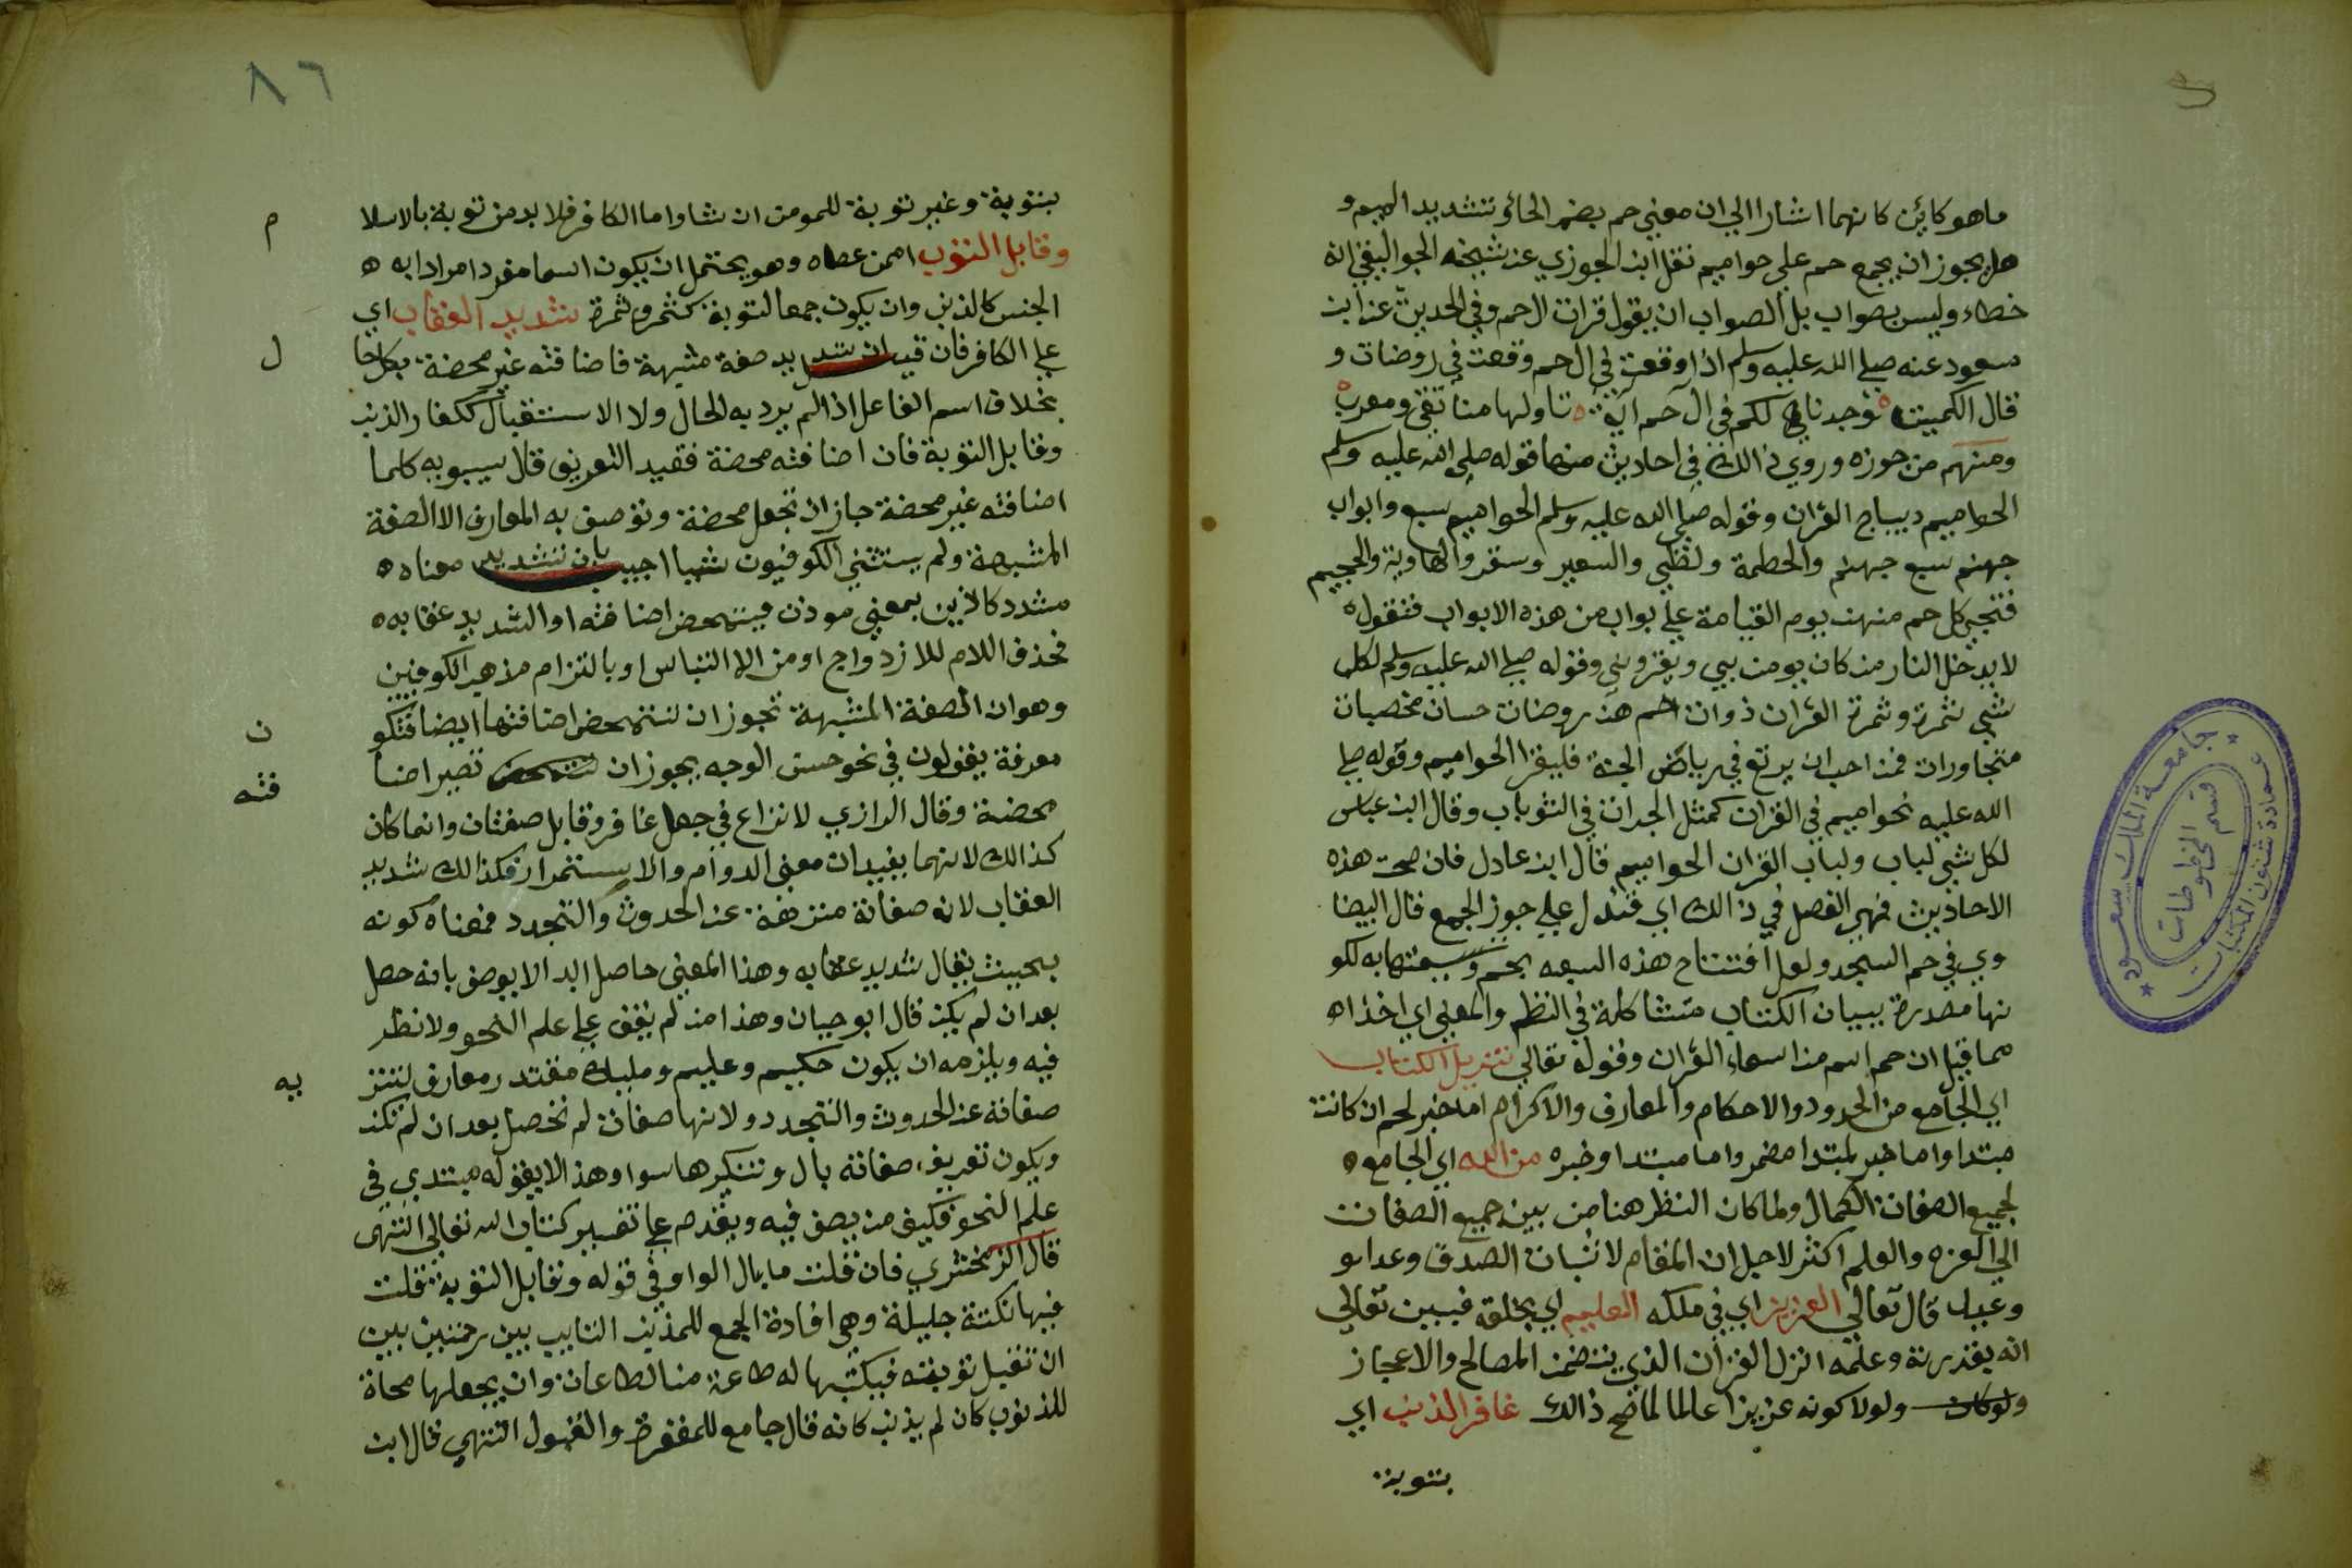 ما هو كاين كانهما اشارا الي ان معني حم بضم الحاء وتشديد الميم و
هل يجوز ان يجمع حم علي حواميم نقل ابن الجوزي عن شيخه الجواليقي انه
خطاء وليس بصواب بل الصواب ان يقول قرات ال حم وفي الحديث عن ابن
سعود عنه صلي الله عليه وسلم اذا وقعت في ال حم وقعت في روضات و
قال الكميت وجدنا لكم في ال حم اية تاولها منا تقي ومعرب
ومنهم من جوزه وروي في ذالك في احاديث منها قوله صلي الله عليه وسلم
الحواميم ديباج القران وقوله صلي الله عليه وسلم الحواميم سبع وابواب
جهنم سبع جهنم والحطمة ولظي والسعير وسقر والهاوية والجحيم
فتجي كل حم منهن يوم القيامة علي بواب من هذه الابواب فتقول
لا يدخل النار من كان يومن بي ويقروني وقوله صلي الله عليه وسلم لكل
شي ثمرة وثمرة القران ذوات حم هن روضات حسان مخصبات
متجاورات فمن احب ان يرتع في رياض الجنة فليقرا الحواميم وقوله صلي
الله عليه نحواميم في القران كمثل الجرات في الثوباب وقال ابن عباس
لكل شي لباب ولباب القران الحواميم قال ابن عادل فان صحت هذه
الاحاديث فهي الفصل في ذالك اي فتدل علي جوز الجمع قال البيضا
وي في حم السجد ولعل افتتاح هذه السبعه بحم وتسميتها به لكو
نها مصدرة ببيان الكتاب متشاكلة في النظم والمعني اي اخذاه
مما قيل ان حم اسم من اسماء القران وقوله تعالي تنزيل الكتاب
اي الجامع من الحدود والاحكام والمعارف والاكرام اما خبر لحم ان كانت
مبتدا واما خبر لمبتدا مضمر واما مبتدا وخبره من الله اي الجامع
لجميع الصفات الكمال ولما كان النظر هنا من بين جميع الصفات
الي العزه والعلم اكثر لاجل ان المقام لاثبات الصدق وعدا و
وعيدا قال تعالي العزيز اي في ملكه العليم اي بخلقه فبين تعالي
انه بقدرته وعلمه انزل القران الذي يتضمن المصالح والاعجاز
ولو كان ولولا كونه عزيزا عالما لما صح ذالك غافر الذنب اي
بتوبة
٨٦
بتوبة وغير توبة للمومن ان شا واما الكافر فلا بد من توبة بالاسلا
م
وقابل التوب اممن عصاه وهو يحتمل ان يكون اسما مفردا مرادا به
الجنس كالذنب وان يكون جمعا لتوبة كثمر وثمرة شديد العقاب اي
علي الكافر فان قيل ان شديد صفة مشبهة فاضافته غير محضة بكل حا
ل
بخلاف اسم الفاعل اذا لم يرد به الحال ولا الاستقبال كغفار الذنب
وقابل التوبة فان اضافته محضة فقيد التعريف قال سيبويه كلما
اضافته غير محضة جاز ان تجعل محضة وتوصف به المعارف الا الصفة
المشبهة ولم يستثني الكوفيون شيا اجيب بان شديد معناه
مشدد كاذين بمعني موذن فيتمحض اضافته او الشديد عقابه
فحذف اللام للازدواج او من الالتباس او بالتزام مذهب الكوفيين
وهو ان الصفة المشبهة تجوز ان تتمحض اضافتها ايضا فتكو
ن
معرفة يقولون في نحو حسن الوجه يجوز ان تتمحض تصير اضا
فته
محضة وقال الرازي لا نزاع في جعل غافر وقابل صفتان وانما كان
كذالك لانهما يفيدان معني الدوام والاستمرار فكذالك شديد
العقاب لانه صفاته منزهة عن الحدوث والتجدد فمعناه كونه
بحيث يقال شديد عقابه وهذا المعني حاصل ابد الا يوصف بانه حصل
بعد ان لم يكن قال ابو حيان وهذا من لم يقف علي علم النحو ولا نظر
فيه ويلزمه ان يكون حكيم وعليم ومليك مقتدر معارف لتنز
يه
صفاته عن الحدوث والتجدد ولانها صفات لم تحصل بعد ان لم تكن
ويكون تعريف صفاته بال وتنكيرها سوا وهذا لا يقوله مبتدي في
علم النحو فكيف من يصف فيه ويقدم علي تفسير كتاب الله تعالي انتهي
قال الزمخشري فان قلت ما بال الواو في قوله وقابل التوبة قلت
فيها نكتة جليلة وهي افادة الجمع للمذنب التايب بين رحمتين بين
ان تقبل توبته فيكتبها له طاعة من الطاعات وان يجعلها محاة
للذنوب كان لم يذنب كانه قال جامع للمغفرة والقبول انتهي قال ابن
جامعة الملك سعود
عمادة شئون المكتبات
قسم المخطوطات